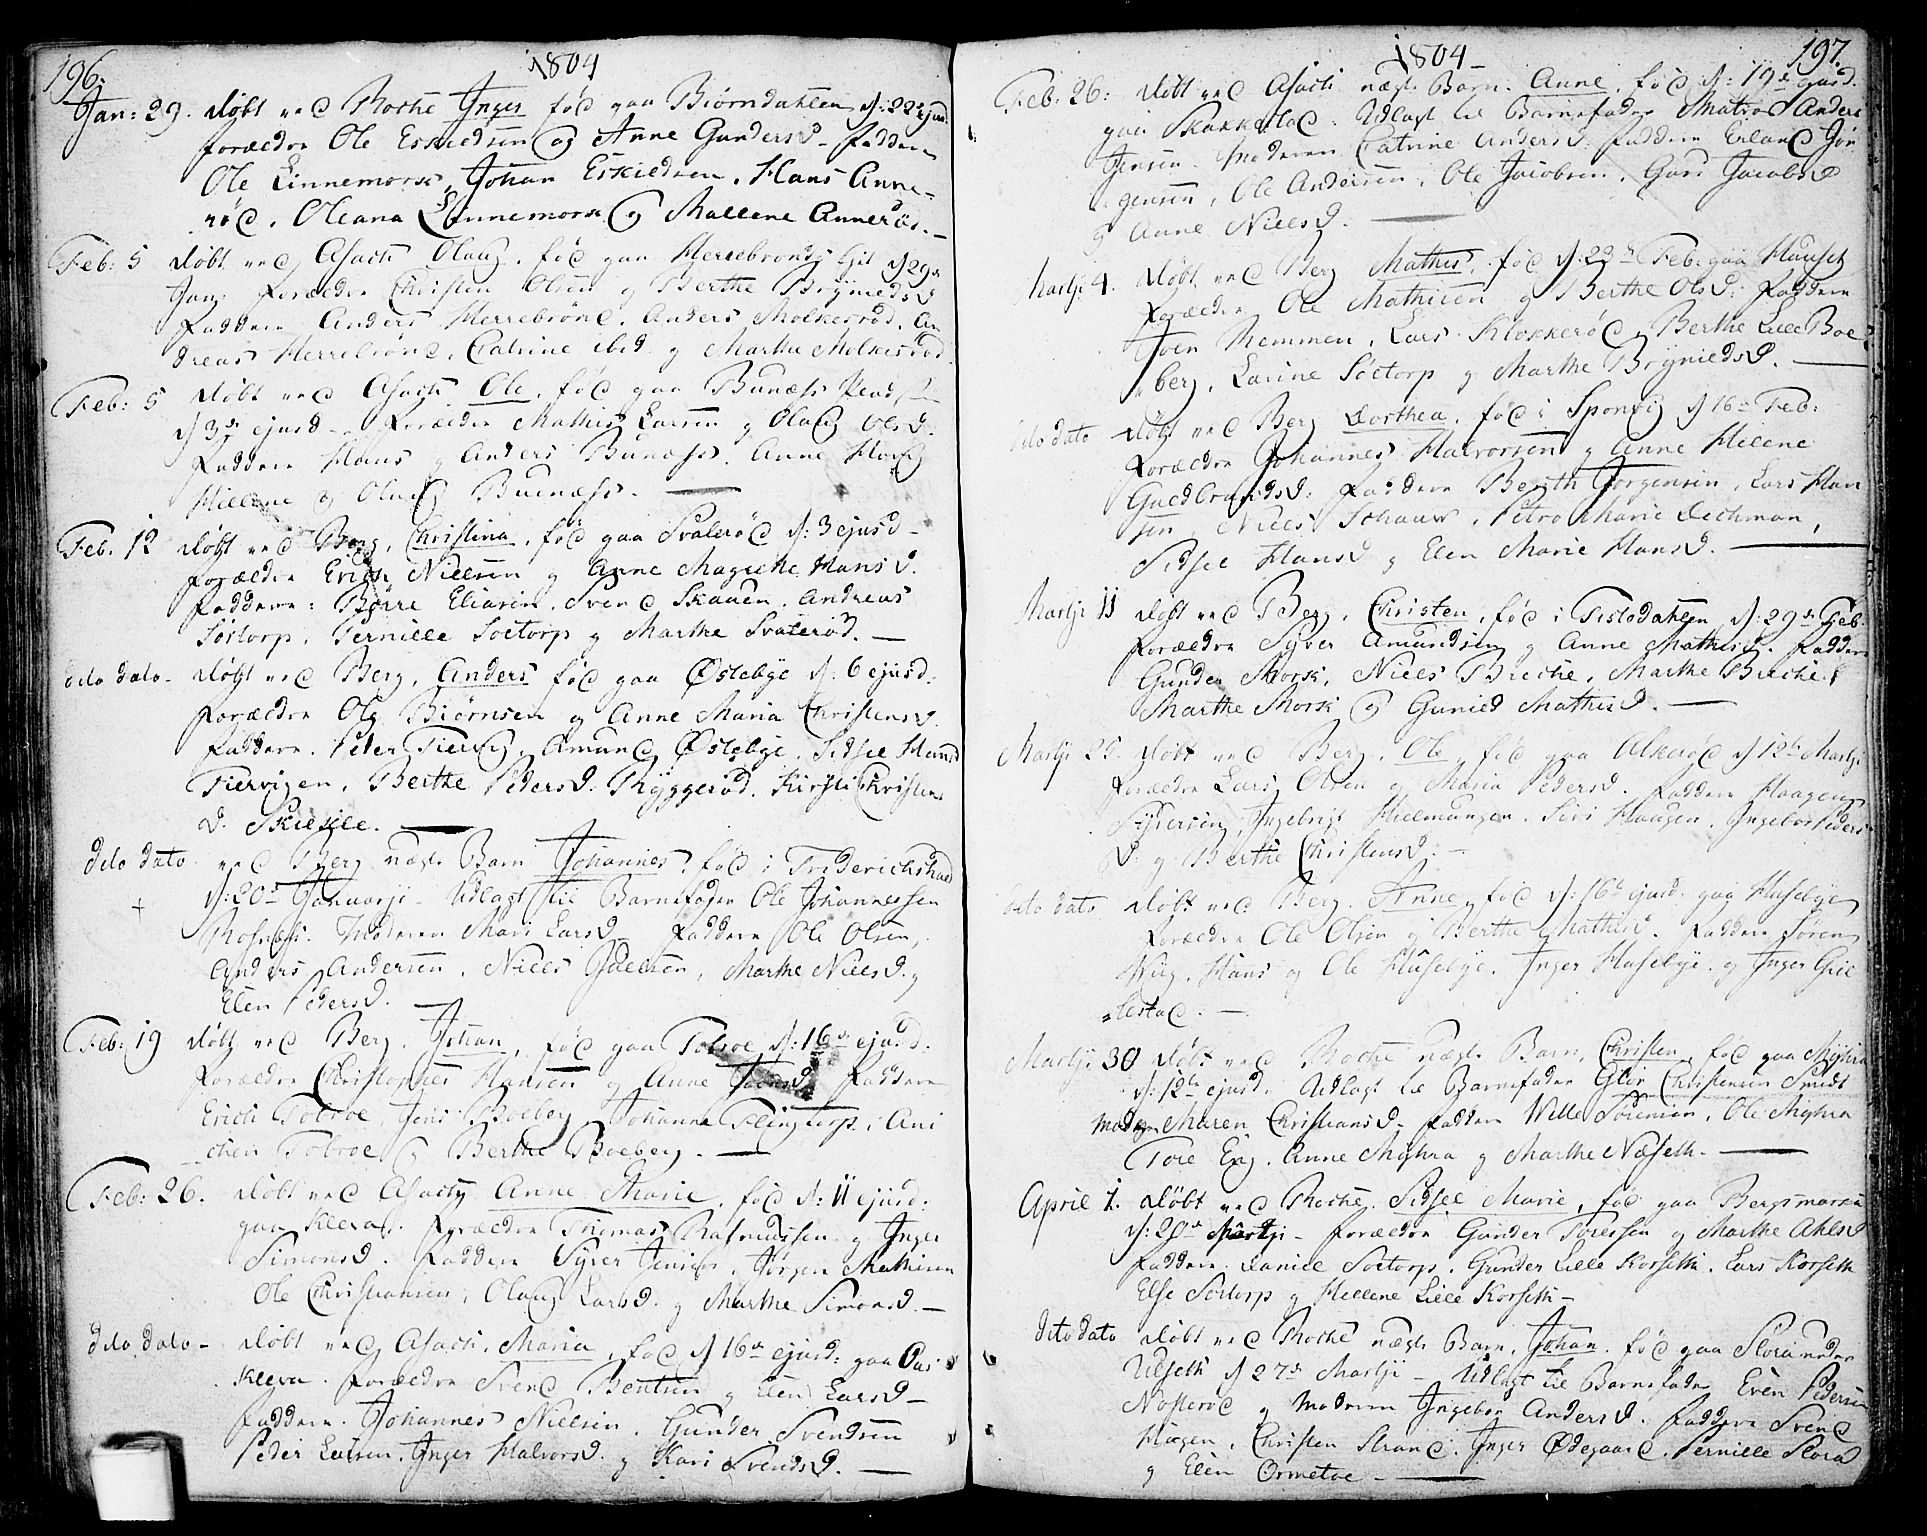 196.
1804
Jan: 29. Døbt ved Rocke Inger, fød paa Biørndahlen d: 22 ejusd.
forældre Ole Eskildsen og Anne Gundersd. faddere
Ole Linnemork, Johan Eskildsen, Hans Anne-
rød, Oleana Linnemork og Mallene Annerød. –
Feb: 5 Døbt ved Asach Olaug, fød paa Herrebrønds Eji d 29de
Jan: forældre Christen Olsen og Berthe Brynieldsd
Faddere Anders Herrebrønd, Anders Molkerød, An
dreas Herrebrønd, Catrine ibid. og Marthe Molkerød.
Feb: 5 Døbt ved Asach Ole, fød paa Bunæss
d 3de ejusd – Forældre Mathis Larsen og Olaug Olsd.
Faddere Hans og Anders Bunæss, Anne
Hellene og Olaug Buenæss. –
Feb: 12 Døbt ved Berg, Christina, fød paa Svalerød d: 3 ejusd –
forældre Erich Nielsen og Anne Magrethe Hansd.
faddere: Børre Eliasen, Svend Skauen, Andreas
Sørtorp, Pernille Sortorp og Marthe Svalerød. –
dito dato – Døbt ved Berg, Anders fød paa Østebye d: 6 ejusd:
forældre Ole Biørnsen og Anne Maria Christensd.
faddere. Peter Tiervig, Amund Østebye, Sidsel Hansd
Tiervigen, Berthe Pedersd. Ryggerød, Kirsti Christens
d. Skielle. –
dito dato ved Berg uægte Barn Johannes, fød i Friderichshald
d: 20de Januarij – Udlagt til Barnefader Ole Johannessen
†
Rosnæs. Moderen Mari Larsd – faddere Ole Olsen,
Anders Andersen, Niels Poelsen, Marthe Nielsd. og
Elen Pedersd. –
Feb: 19 Døbt ved Berg, Johan, fød paa Tobroe d: 16de ejusd.
forældre Christopher Hansen og Anne Joensd faddere
Erich Tobroe, Jens Boeberg, Johanne Flingtorp, Ani
chen Tobroe og Berthe Boeberg. –
Feb: 26. Døbt ved Asach, Anne Marie, fød d: 11 ejusd:
paa Kleva. forældre Thomas Rasmussen og Inger
Simonsd. faddere Syver Jensen, Jørgen Mathisen
Ole Christiansen, Olaug Larsd. og Marthe Simonsd. –
dito dato – Døbt ved Asach, Maria, fød d 16de ejusd: paa
Kleva. forældre Svend Bentsen og Elen Larsd –
faddere. Johannes Nielsen, Gunder Svendsen
Peder Larsen, Inger Halvorsd. og Kari Svendsd. –
1804 –
197.
Feb: 26: Døbt ved Asach uægte Barn Anne, fød d: 19de ejusd.
paa Skakkestad. Udlagt til Barnefader Matros Anders
Jensen Moderen Catrine Andersd. faddere Erland Jør
gensen, Ole Andersen, Ole Jacobsen, Guri Jacobsd
og Anne Nielsd. –
Martji 4. Døbt ved Berg Mathis, fød d: 23de Feb: paa
forældre Ole Mathisen og Berthe Olsd: faddere
Joen Hemmen, Lars Klokkerød, Berthe Lille Boe
berg, Larine Sortorp og Marthe Brynieldsd. –
dito dato Døbt ved Berg Dorthea, fød i Sponvig d 16de Feb:
forældre Johannes Halvorsen og Anne Helene
Guldbrandsd: faddere Berth Jørgensen, Lars Han
sen, Niels Schauw, Petro Marie Dechman,
Sidsel Hansd og Elen Marie Hansd. –
Martji 11 Døbt ved Berg, Christen, fød i Tistedahlen d: 29de Feb.
forældre Syver Amundsen og Anne Mathisd. faddere
Gunder Mork, Niels Breche, Marthe Breche,
Marthe Mork og Gunild Mathisd. –
Martji 25. Døbt ved Berg, Ole, fød paa Alkerød d 12te Martji
forældre Lars Olsen og Maria Pedersd. faddere Haagen
Syversen, Ingebrigt Hielmungen, Siri Haugen, Ingebor Peders
d. og Berthe Christensd. –
dito dato Døbt ved Berg. Anne, fød d: 16de ejusd. paa Husebye
forældre Ole Olsen og Berthe Mathisd. faddere Søren
Wiig, Hans og Ole Husebye, Inger Husebye. og Inger Giel
lestad. –
Martji 30 Døbt ved Rocke uægte Barn, Christen, fød paa Myhra
d: 12te ejusd. Udlagt til Barnefader Glør Christensen Smidt
Moderen Maren Christiansd – faddere Wille Sørensen, Ole Myhra
Tore Eng, Anne Myhra og Marthe Næseth. –
April 1. Døbt ved Rocke. Sidsel Marie, fød paa Bergsmarka
d: 20de Martji – forældre Gunder Toressen og Marthe Ahlsd
faddere. Daniel Sortorp, Gunder Lille Korseth, Lars Korseth
Else Sortorp og Hellene Lille Korseth –
dito dato Døbt ved Rocke uægte Barn, Johan, fød paa Flora under
Ulseth d 27de Martji – Udlagt til Barnefader Even Pedersen
Nøsterød og Moderen Ingebor Andersd. faddere Svend
Hagen, Christen Strand, Inger Ødegaard, Pernille Flora
og Elen Ormetoe. –